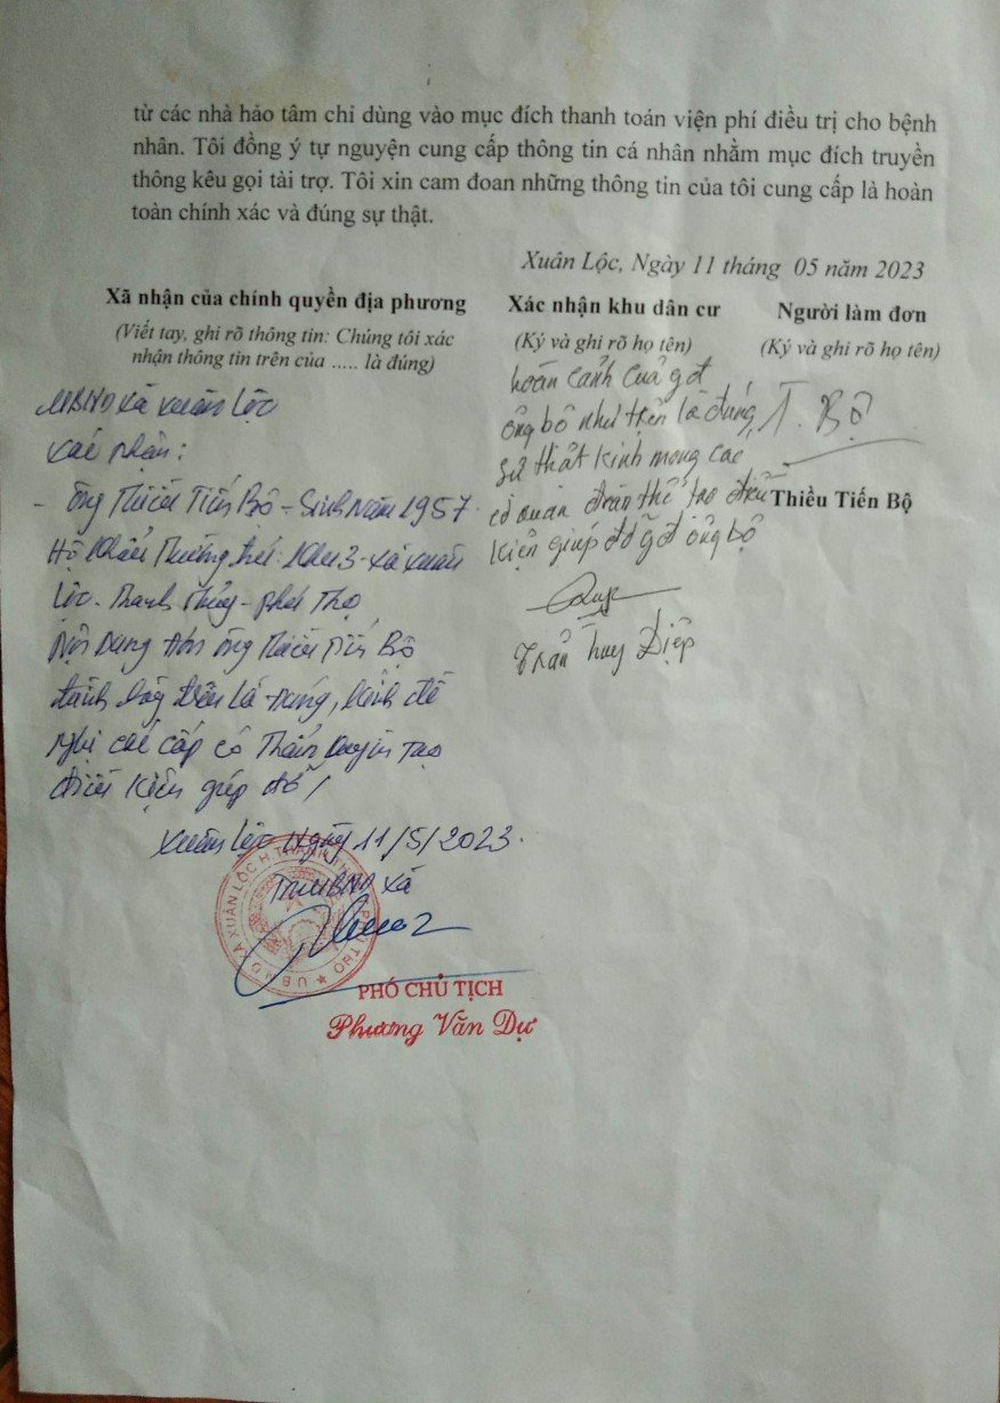 từ các nhà hảo tâm chỉ dùng vào mục đích thanh toán viện phí điều trị cho bệnh
nhân. Tôi đồng ý tự nguyện cung cấp thông tin cá nhân nhằm mục đích truyền
thông kêu gọi tài trợ. Tôi xin cam đoan những thông tin của tôi cung cấp là hoàn
toàn chính xác và đúng sự thật.
Xuân Lộc, Ngày 11 tháng 05 năm 2023
Xã nhận của chính quyền địa phương
(Viết tay, ghi rõ thông tin: Chúng tôi xác
nhận thông tin trên của ..... là đúng)
UBND xã Xuân Lộc
Xác nhận:
- Ông Thiều Tiến Bộ - Sinh Năm 1957
Hộ Khẩu Thường trú: Khu 3 - xã Xuân
Lộc - Thanh Thủy - Phú Thọ
Nội Dung đơn ông Thiều Tiến Bộ
trình bày trên là đúng, kính đề
nghị các cấp có Thẩm quyền tạo
điều kiện giúp đỡ /
Xuân Lộc Ngày 11/5/2023.
TM UBND xã
U.B.N.D XÃ XUÂN LỘC H. THANH THỦY T. PHÚ THỌ
PHÓ CHỦ TỊCH
Phương Văn Dự
Xác nhận khu dân cư
(Ký và ghi rõ họ tên)
hoàn cảnh của gđ
ông bộ như trên là đúng
sự thật kính mong các
cơ quan đoàn thể tạo điều
kiện giúp đỡ gđ ông bộ
Trần huy Điệp
Người làm đơn
(Ký và ghi rõ họ tên)
T. Bộ
Thiều Tiến Bộ